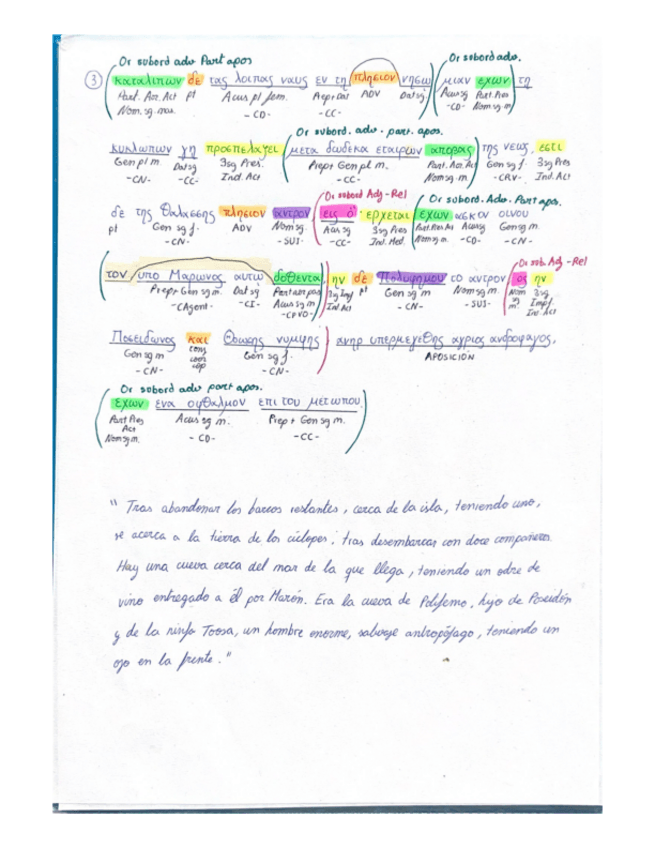 Or subord adv Part apos Or subord adv.
③ καταλιπων δε τας λοιπας ναυς εν τη πλησιον νησω μιαν εχων τη
Part. Aor. Act pt Acus pl fem. Prep+Dat ADV Dat sg Acus sg Part Pres
Nom. sg. mas. -CD- -CC- -CD- Nom sg m
Or subord. adv. part. apos.
κυκλωπων γη προσπελαζει μετα δωδεκα εταιρων αποβας της νεως, εστι
Gen pl m Dat sg 3sg Pres. Prep+ Gen pl m. Part. Aor. Act Gen sg f. 3sg Pres
-CN- -CC- Ind. Act. -CC- Nom sg m. -CRV- Ind. Act
Or subord Adj-Rel Or subord. Adv. Part apos.
δε της θαλασσης πλησιον αντρον εις ο ερχεται εχων ασκον οινου
pt Gen sg f. ADV Nom sg. Acus sg 3sg Pres Part Pres Act Acus sg Gen sg m.
-CN- -SUJ- -CC- Ind. Med. Nom sg m. -CD- -CN-
Or sub. Adj-Rel
τον υπο Μαρωνος αυτω δοθεντα, ην δε Πολυφημου το αντρον ος ην
Prep+ Gen sg m. Dat sg Part aor pas 3sg Imp pt Gen sg m Nom sg m. Nom sg m. 3sg Impf.
-CAgent- -CI- Acus sg m Ind Act -CN- -SUJ- Ind. Act
-CPVO-
Ποσειδωνος και Θοωσης νυμφης ανηρ υπερμεγεθης αγριος ανδροφαγος,
Gen sg m conj coor cop Gen sg f. APOSICIÓN
-CN- -CN-
Or subord adv part apos.
εχων ενα οφθαλμον επι του μετωπου.
Part Pres Acus sg m. Prep+ Gen sg m.
Act -CD- -CC-
Nom sg m.
" Tras abandonar los barcos restantes, cerca de la isla, teniendo uno,
se acerca a la tierra de los cíclopes, tras desembarcar con doce compañeros.
Hay una cueva cerca del mar de la que llega, teniendo un odre de
vino entregado a él por Marón. Era la cueva de Polifemo, hijo de Poseidón
y de la ninfa Toosa, un hombre enorme, salvaje antropófago, teniendo un
ojo en la frente."